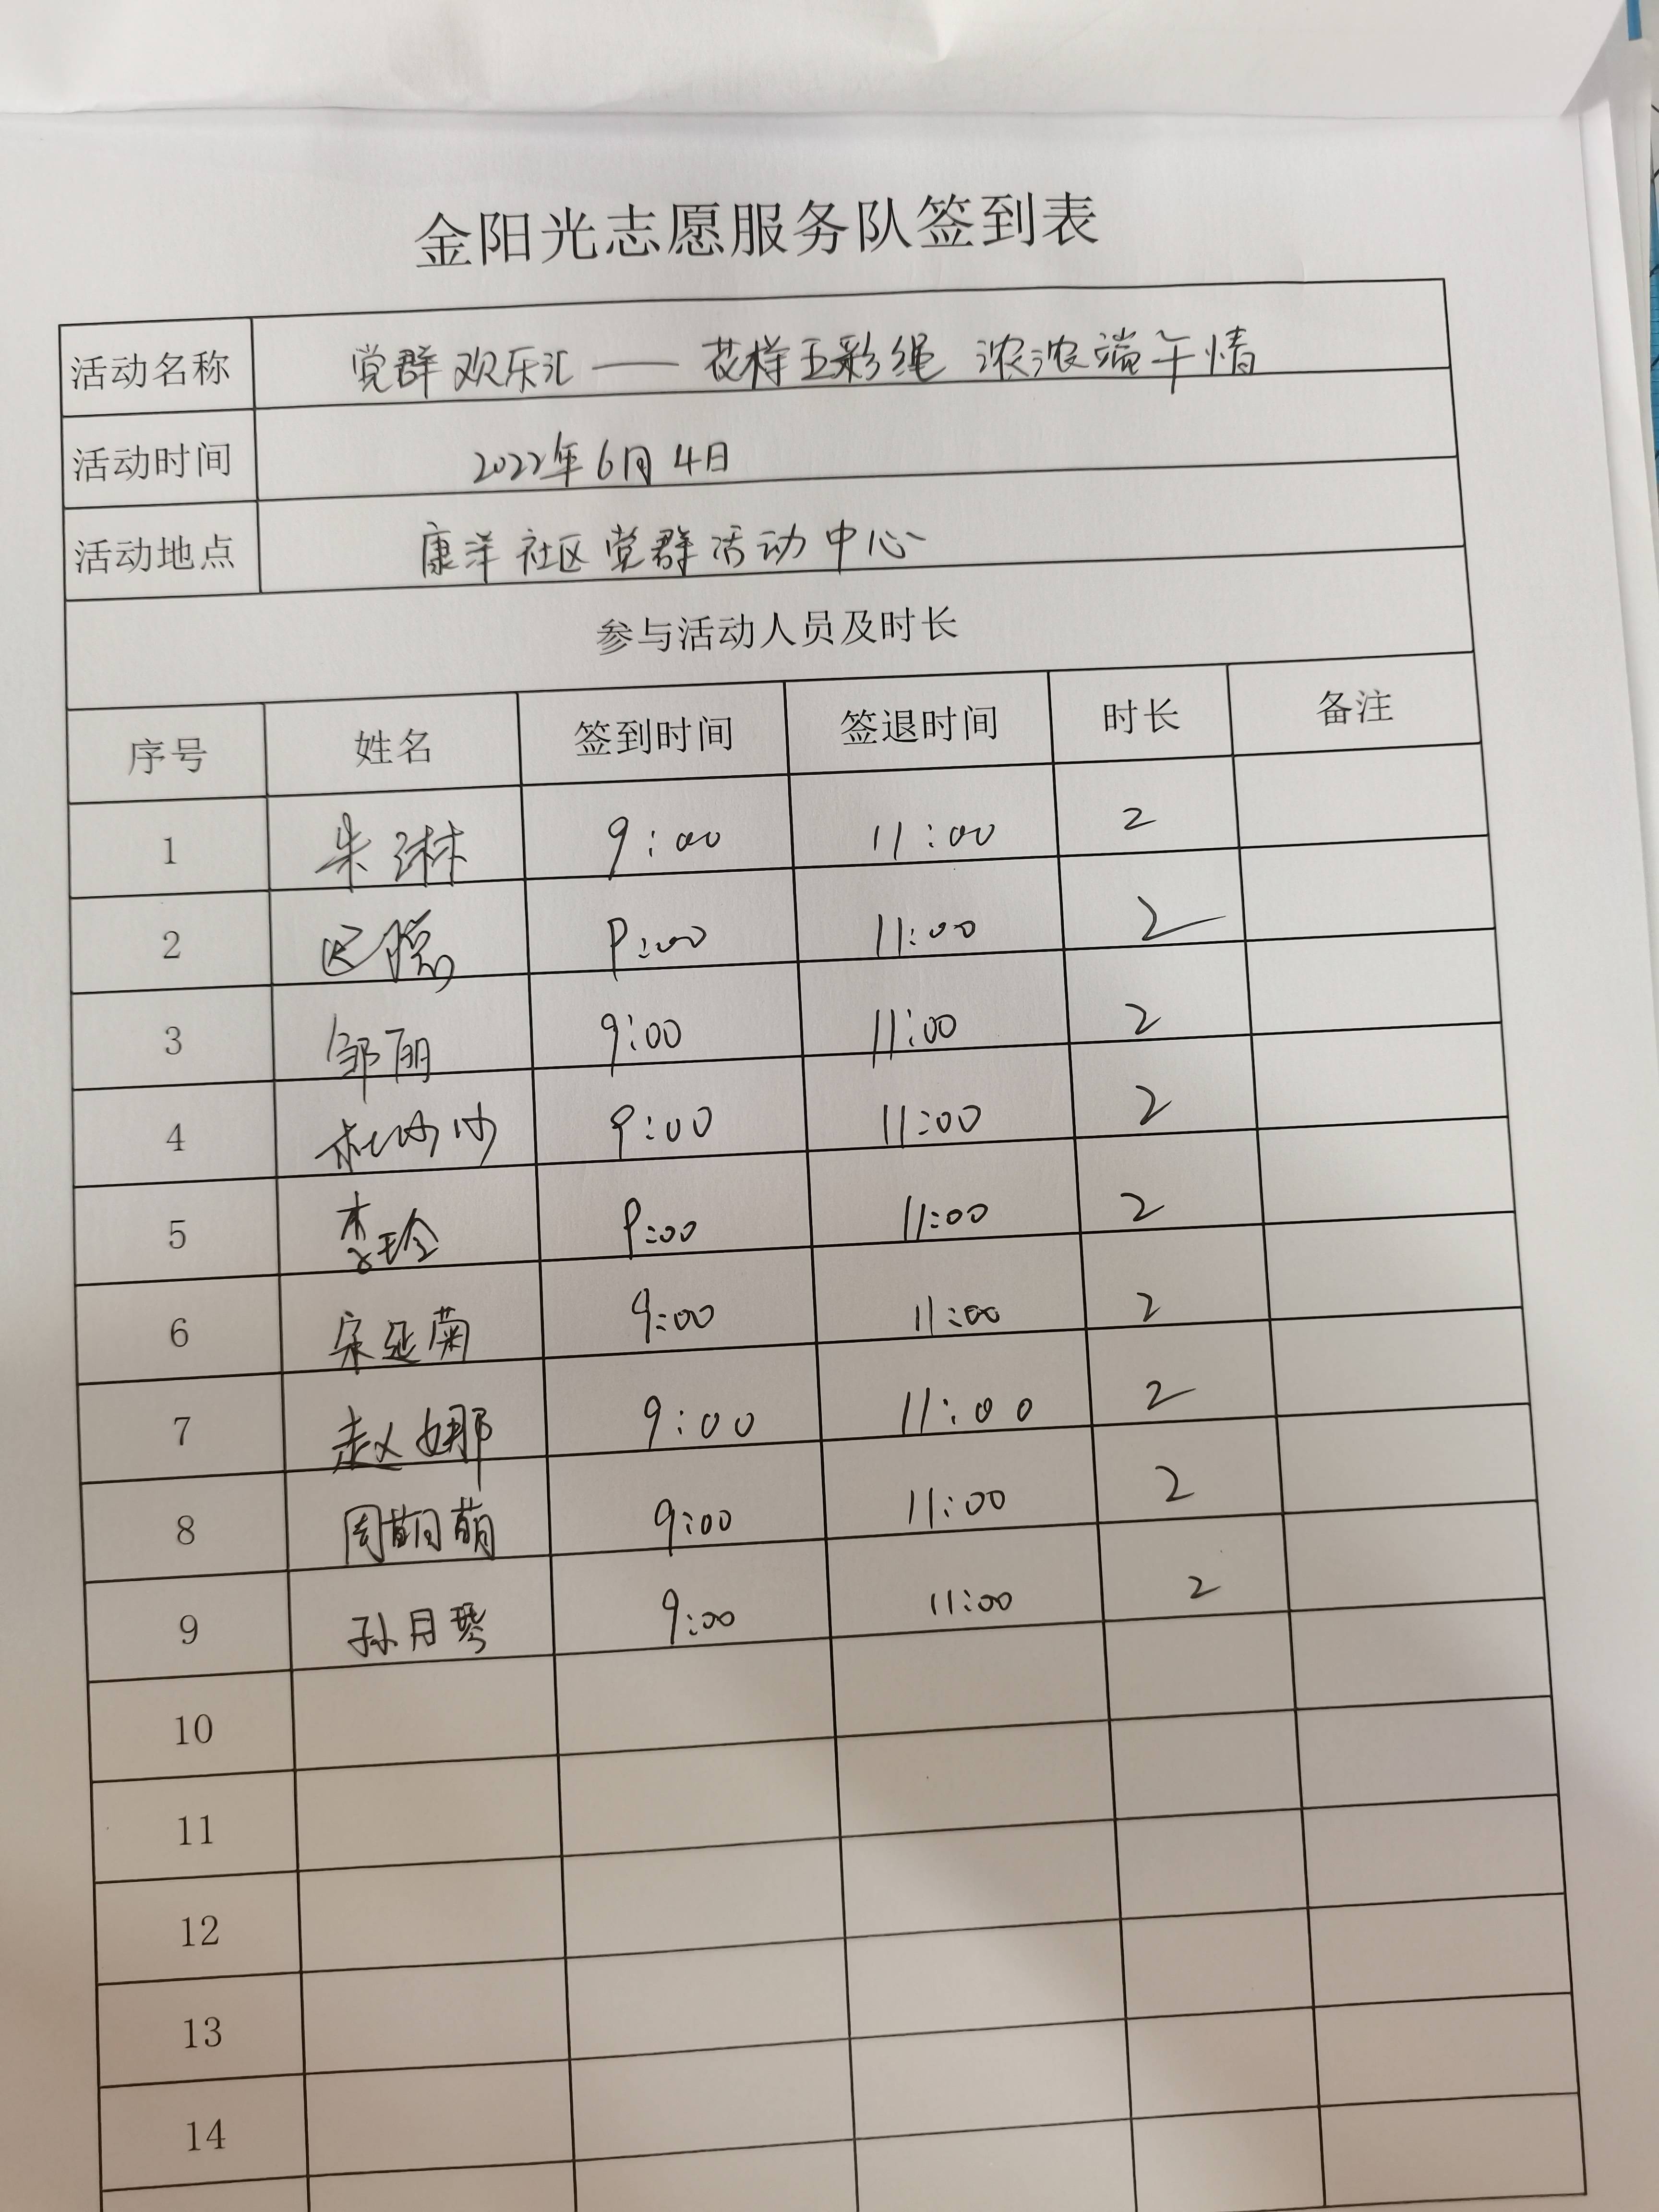 金阳光志愿服务队签到表
活动名称 党群欢乐汇——花样五彩绳 浓浓端午情
活动时间 2022年6月4日
活动地点 康洋社区党群活动中心
参与活动人员及时长
序号 姓名 签到时间 签退时间 时长 备注
1 朱琳 9:00 11:00 2
2 9:00 11:00 2
3 邹丽 9:00 11:00 2
4 杜沙沙 9:00 11:00 2
5 李玲 9:00 11:00 2
6 宋延菊 9:00 11:00 2
7 赵娜 9:00 11:00 2
8 周萌萌 9:00 11:00 2
9 孙月琴 9:00 11:00 2
10
11
12
13
14